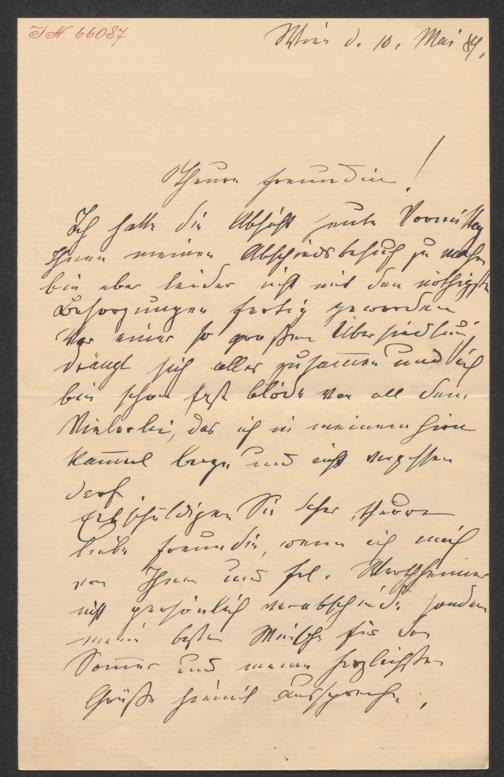 J.N. 66087
Wien d. 10. Mai 89.
Theure Freundin!
Ich hatte die Absicht heute Vormittag
Ihnen meinen Abschiedsbesuch zu machen
bin aber leider nicht mit den nöthigsten
Besorgungen fertig geworden
Vor einer so großen Übersiedlung
drängt sich alles zusammen und ich
bin schon fast blöde von all dem
Vielerlei, das ich in meinem Hirn
Kammerl berge und nicht vergessen
darf
Entschuldigen Sie daher, theure
liebe Freundin, wenn ich mich
von Ihnen und Frl. Wertheimer
nicht persönlich verabschiede sondern
meine besten Wünsche für den
Sommer und meine herzlichsten
Grüße hiemit ausspreche.